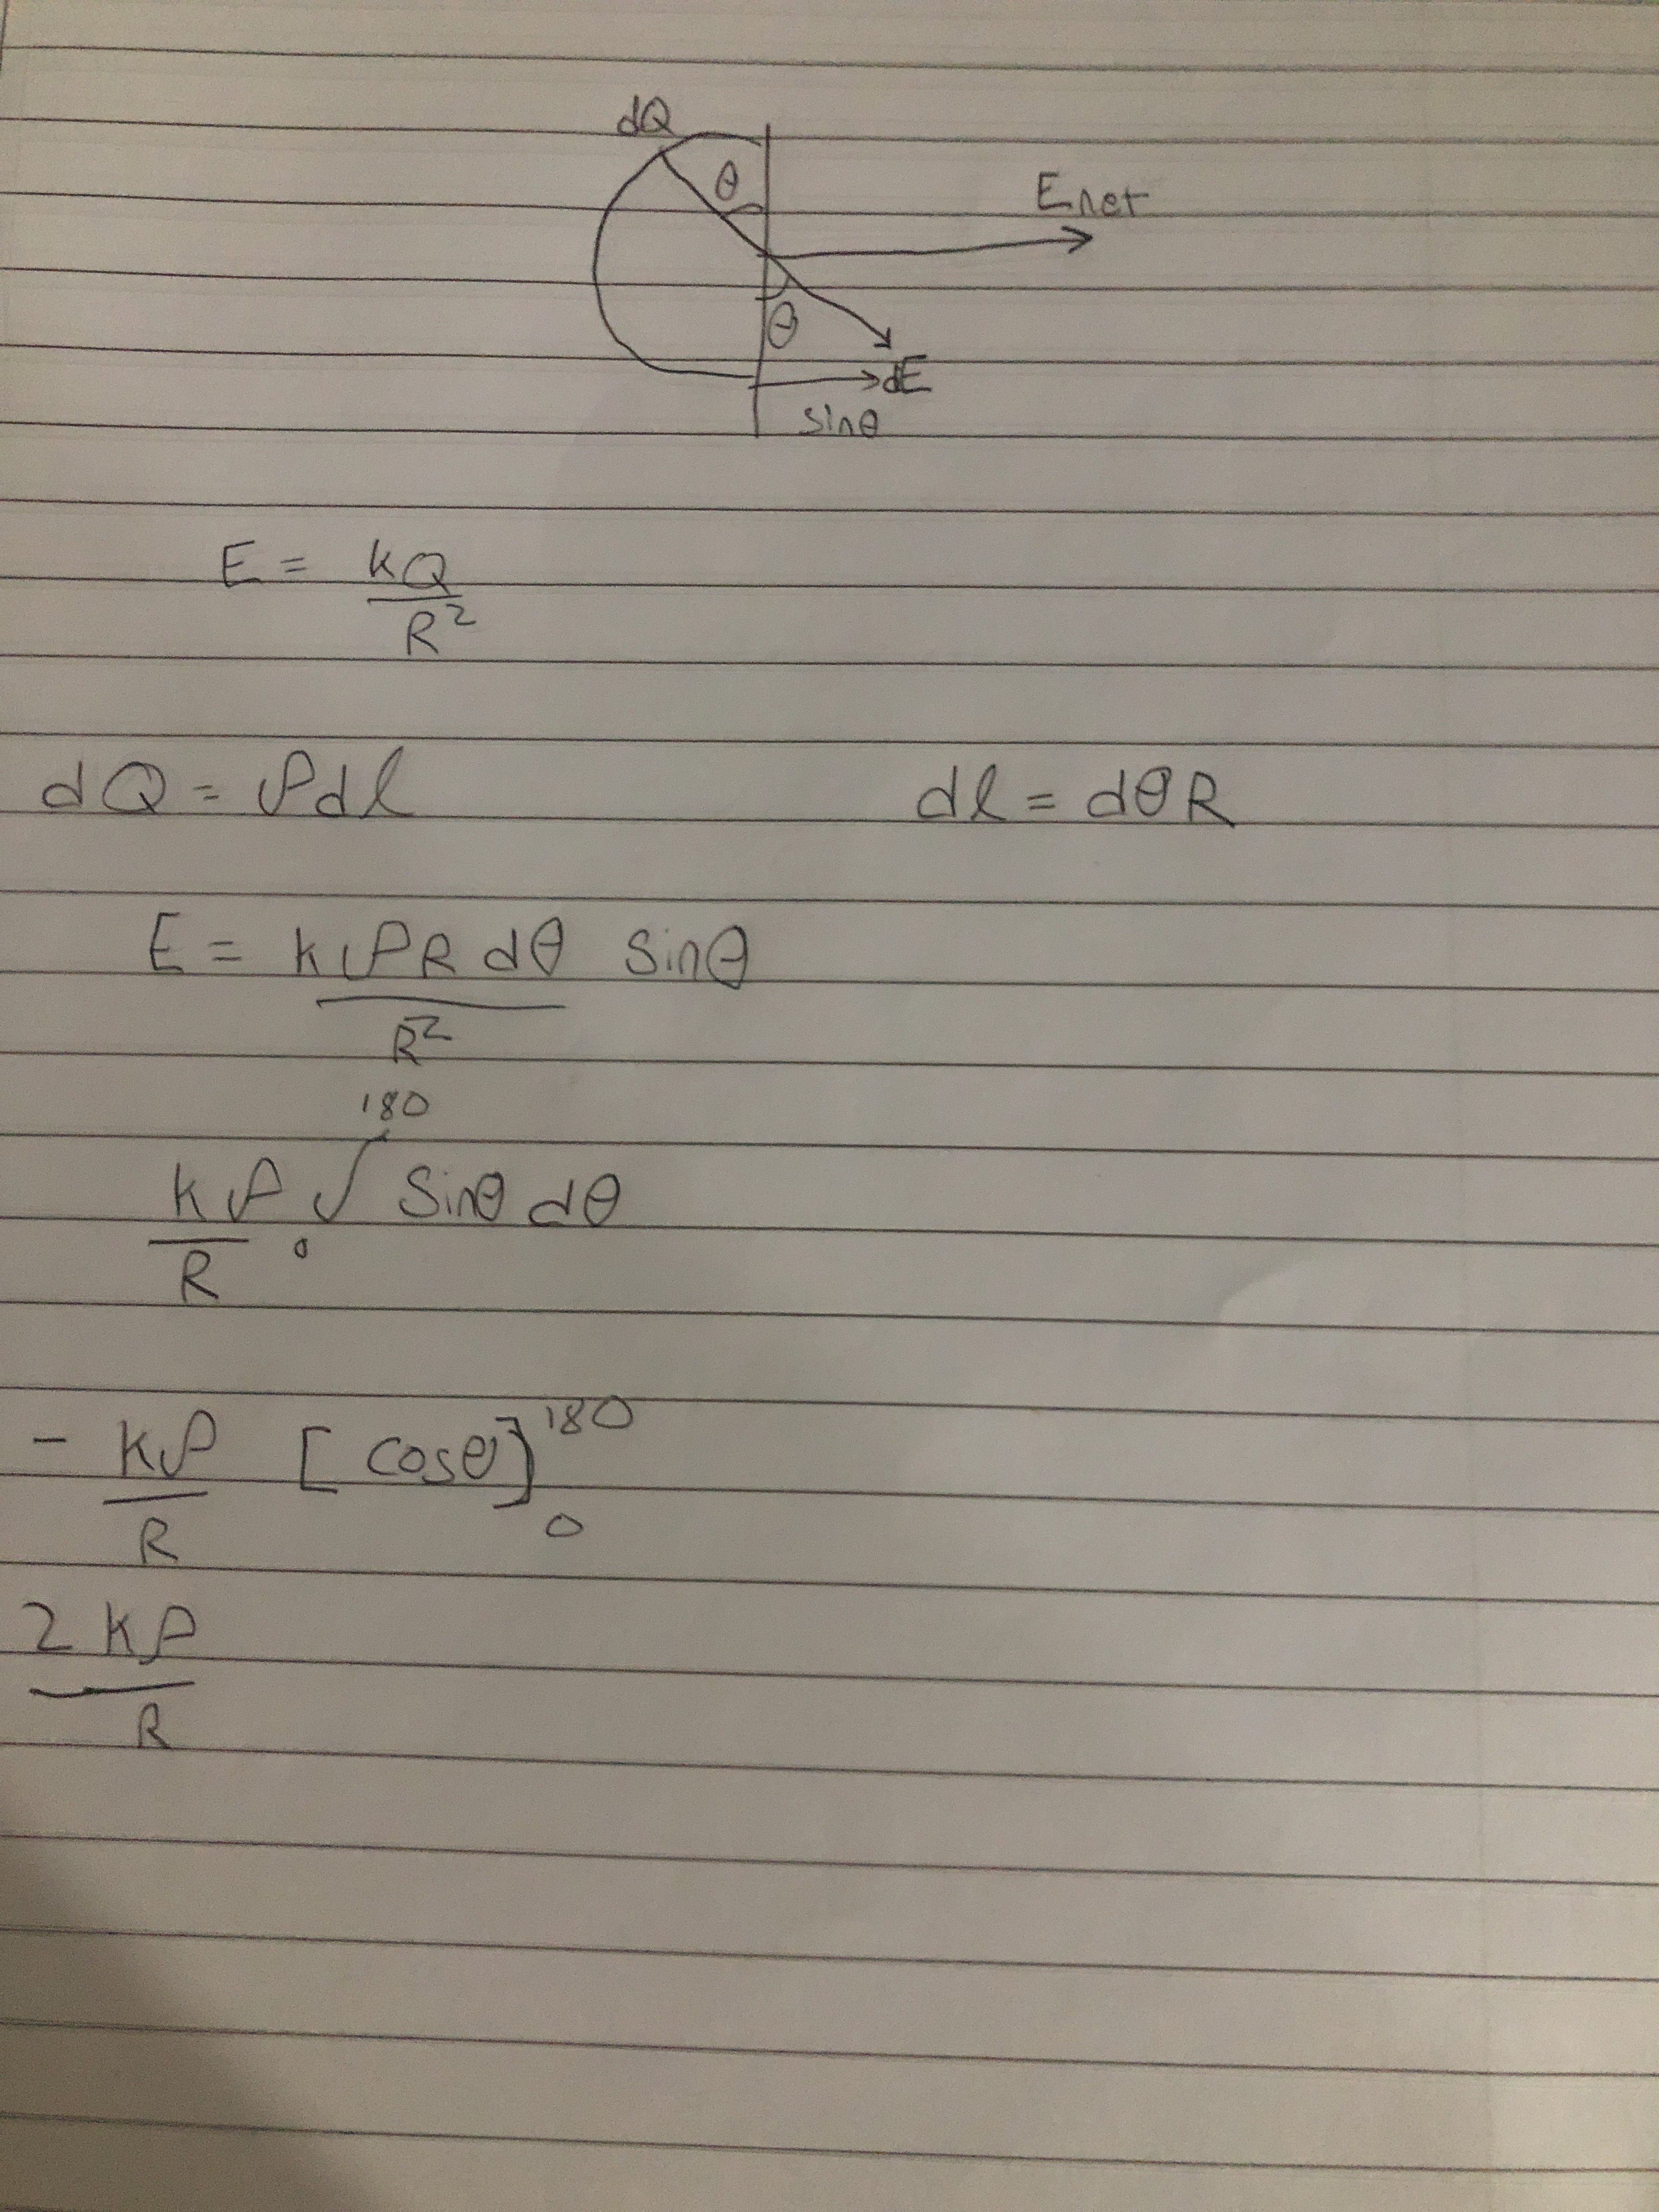 dQ
θ
Enet
θ
dE
sinθ
E = kQ/R²
dQ = ρdl dl = dθR
E = kρR dθ/R² sinθ
kρ/R ∫₀¹⁸⁰ sinθ dθ
- kρ/R [cosθ]₀¹⁸⁰
2kρ/R